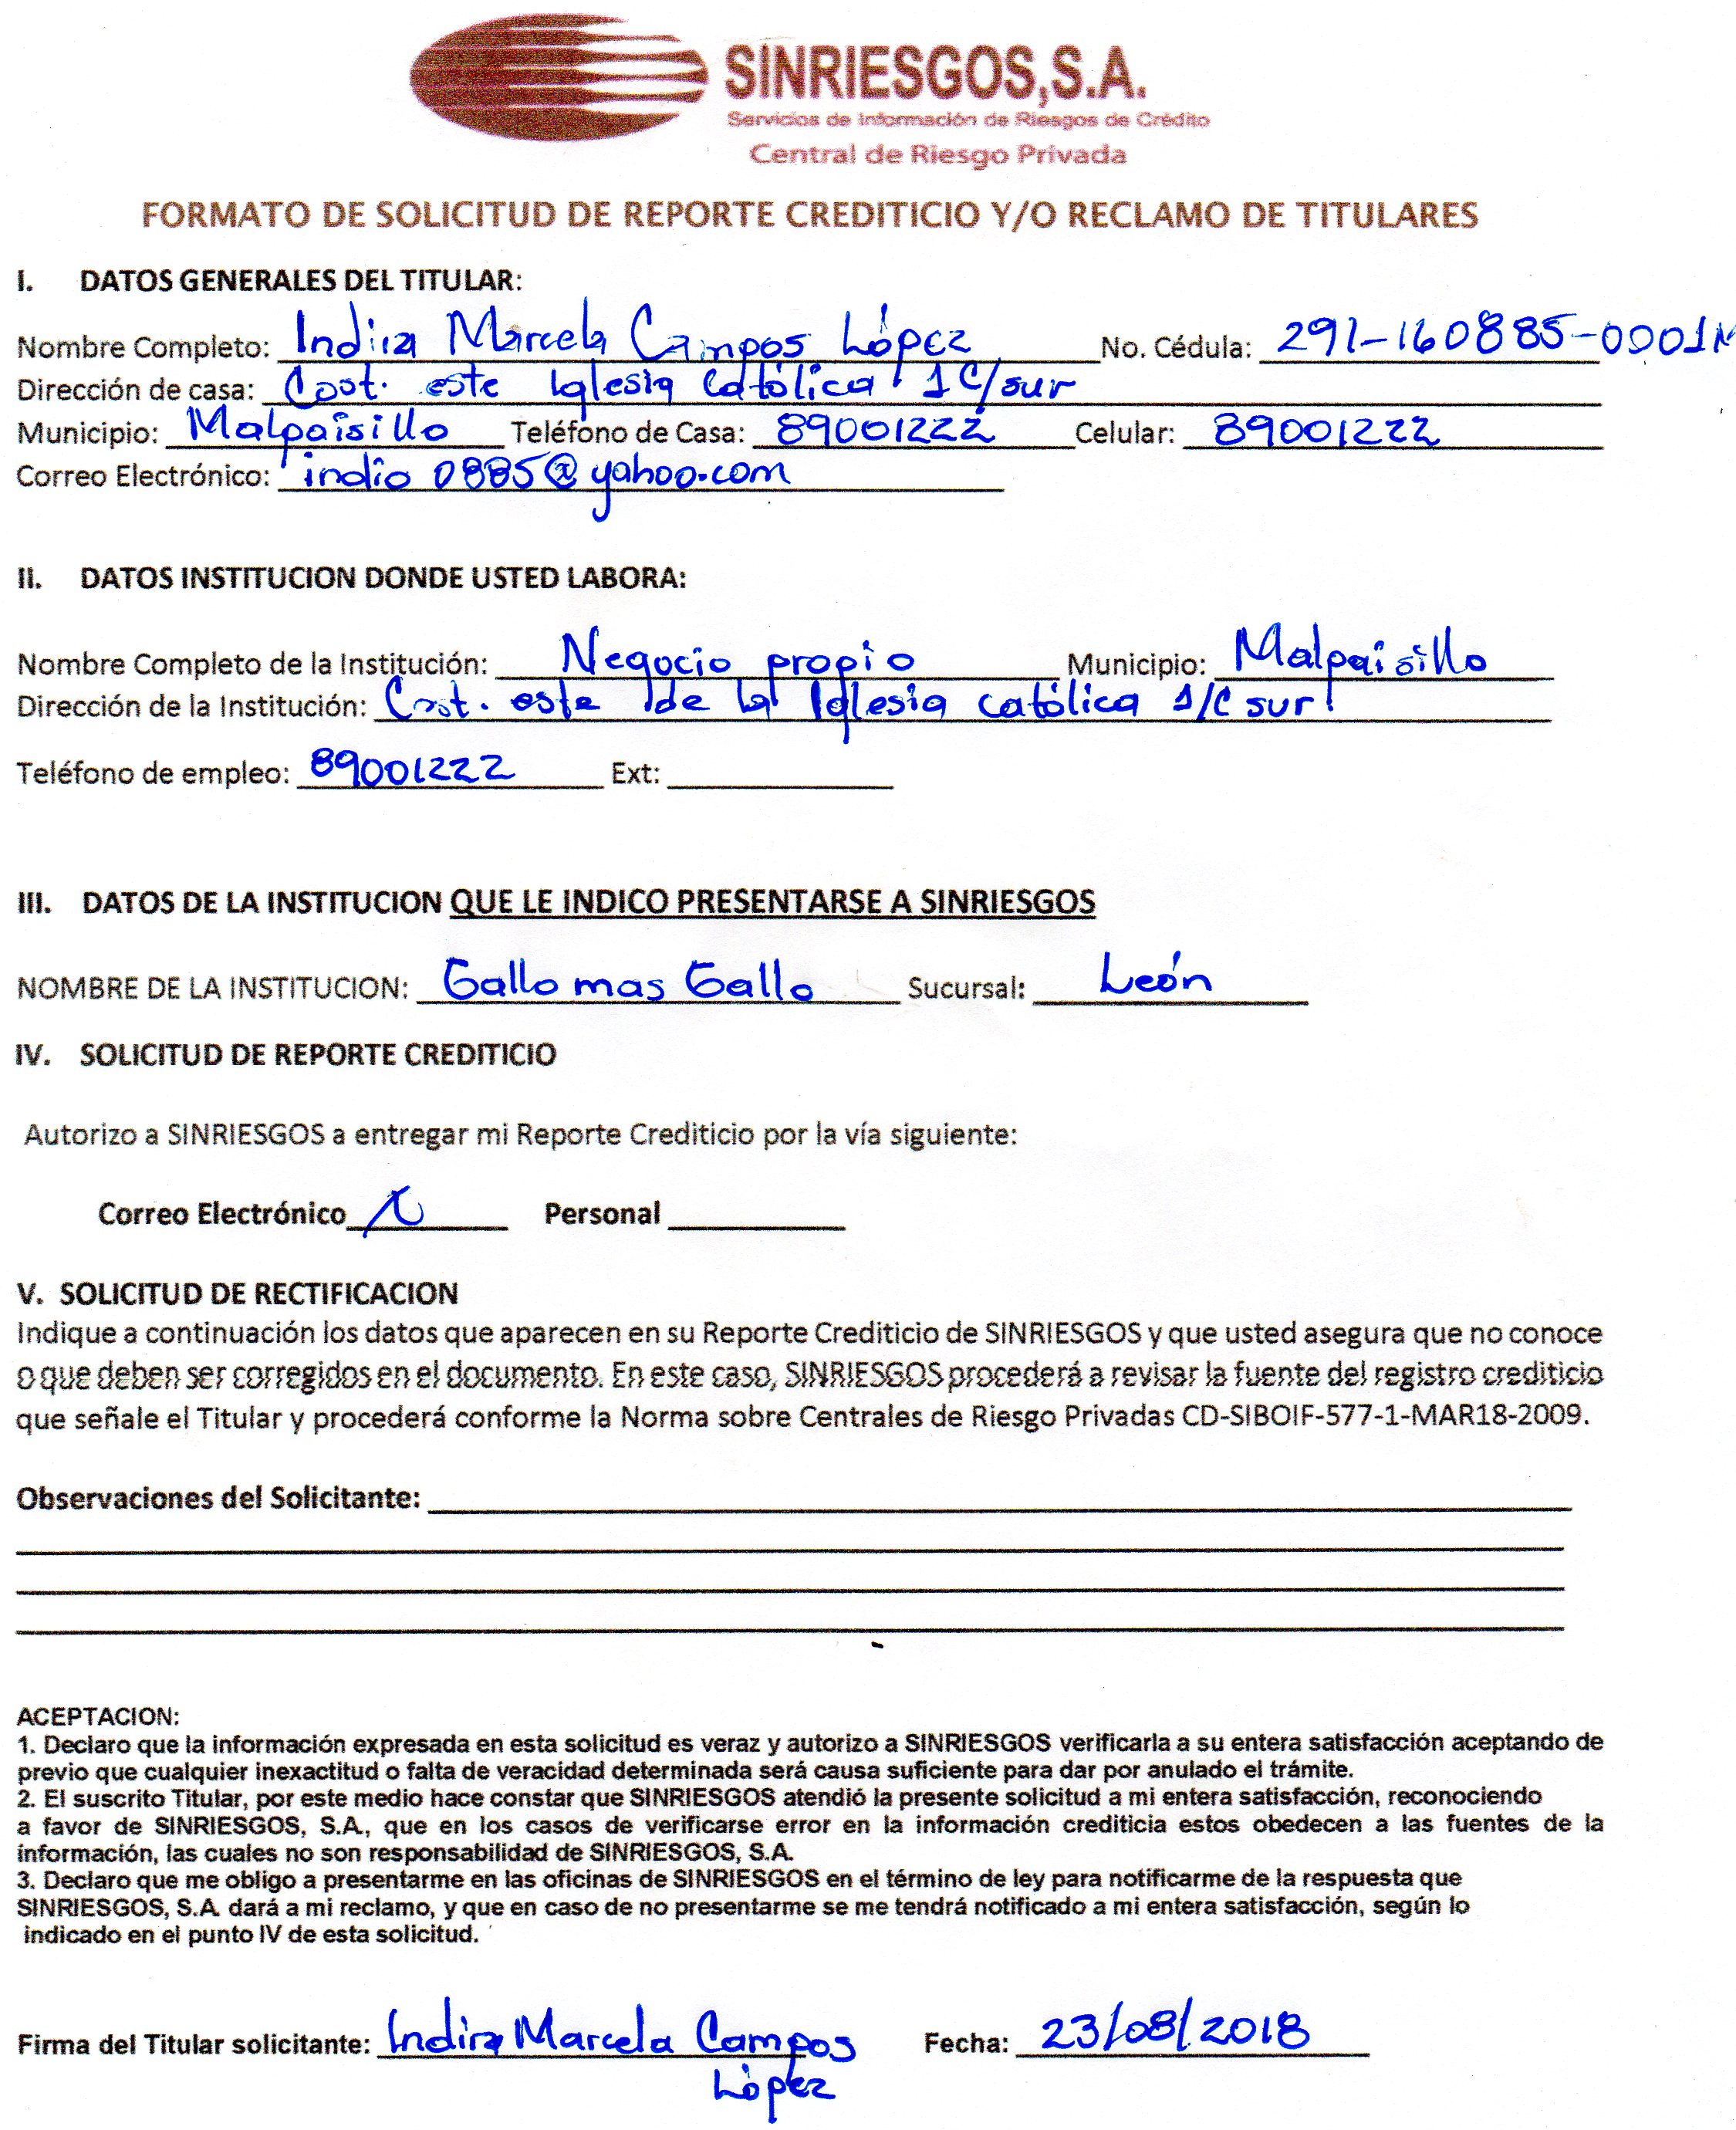 SINRIESGOS,S.A.
Servicios de Información de Riesgos de Crédito
Central de Riesgo Privada
FORMATO DE SOLICITUD DE REPORTE CREDITICIO Y/O RECLAMO DE TITULARES
I. DATOS GENERALES DEL TITULAR:
Nombre Completo: Indira Marcela Campos López No. Cédula: 291-160885-0001M
Dirección de casa: Cost. este Iglesia Católica 1 C/sur
Municipio: Malpaisillo Teléfono de Casa: 89001222 Celular: 89001222
Correo Electrónico: indio 0885@yahoo.com
II. DATOS INSTITUCION DONDE USTED LABORA:
Nombre Completo de la Institución: Negocio propio Municipio: Malpaisillo
Dirección de la Institución: Cost. este de la Iglesia católica 1/C sur
Teléfono de empleo: 89001222 Ext:
III. DATOS DE LA INSTITUCION QUE LE INDICO PRESENTARSE A SINRIESGOS
NOMBRE DE LA INSTITUCION: Gallo mas Gallo Sucursal: León
IV. SOLICITUD DE REPORTE CREDITICIO
Autorizo a SINRIESGOS a entregar mi Reporte Crediticio por la vía siguiente:
Correo Electrónico X Personal
V. SOLICITUD DE RECTIFICACION
Indique a continuación los datos que aparecen en su Reporte Crediticio de SINRIESGOS y que usted asegura que no conoce
o que deben ser corregidos en el documento. En este caso, SINRIESGOS procederá a revisar la fuente del registro crediticio
que señale el Titular y procederá conforme la Norma sobre Centrales de Riesgo Privadas CD-SIBOIF-577-1-MAR18-2009.
Observaciones del Solicitante:
ACEPTACION:
1. Declaro que la información expresada en esta solicitud es veraz y autorizo a SINRIESGOS verificarla a su entera satisfacción aceptando de
previo que cualquier inexactitud o falta de veracidad determinada será causa suficiente para dar por anulado el trámite.
2. El suscrito Titular, por este medio hace constar que SINRIESGOS atendió la presente solicitud a mi entera satisfacción, reconociendo
a favor de SINRIESGOS, S.A., que en los casos de verificarse error en la información crediticia estos obedecen a las fuentes de la
información, las cuales no son responsabilidad de SINRIESGOS, S.A.
3. Declaro que me obligo a presentarme en las oficinas de SINRIESGOS en el término de ley para notificarme de la respuesta que
SINRIESGOS, S.A. dará a mi reclamo, y que en caso de no presentarme se me tendrá notificado a mi entera satisfacción, según lo
indicado en el punto IV de esta solicitud.
Firma del Titular solicitante: Indira Marcela Campos Fecha: 23/08/2018
López